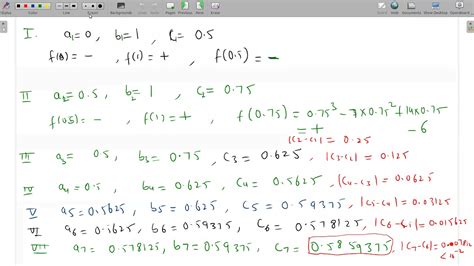 I. a₁=0, b₁=1, C₁= 0.5
f(0)= -, f(1)= +, f(0.5)= -
II a₂=0.5, b₂=1, C₂= 0.75
f(0.5)= -, f(1)= +, f(0.75)= 0.75³ - 7×0.75² +14×0.75 - 6
= +
|C₂-C₁| = 0.25
III a₃ 0.5, b₃= 0.75, C₃ = 0.625 |C₃-C₂|= 0.125
IV a₄=0.5, b₄= 0.625, C₄= 0.5625, |C₄-C₃|= 0.0625
V a₅=0.5625, b₅= 0.625, C₅= 0.59375, 
VI a₆=0.5625 b₆= 0.59375, C₆= 0.578125, = 0.015625
VII a₇= 0.578125, b₇= 0.59375, C₇= 0.5859375, |C₇-C₆|= 
< 10⁻²